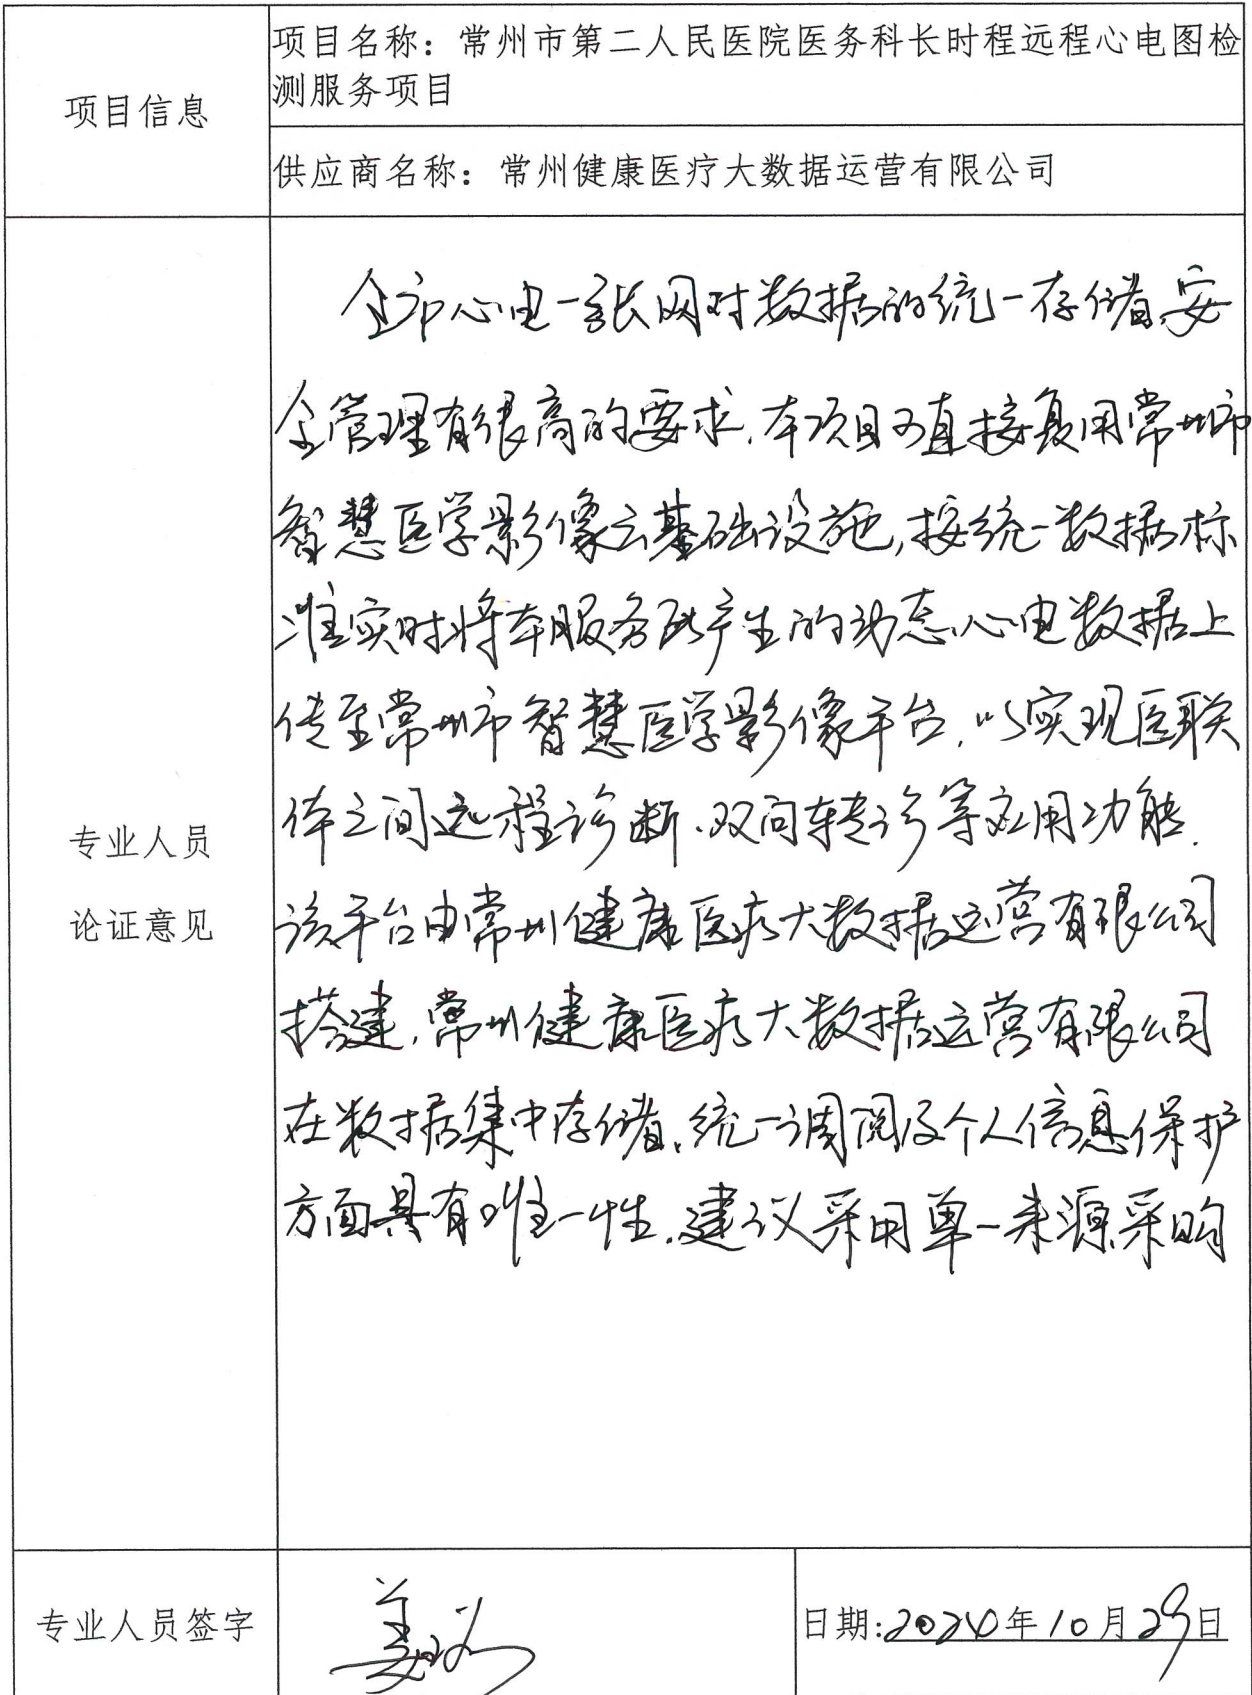 项目信息
项目名称：常州市第二人民医院医务科长时程远程心电图检
测服务项目
供应商名称：常州健康医疗大数据运营有限公司
专业人员
论证意见
全市心电一张网对数据的统一存储、安
全管理有很高的要求，本项目可直接复用常州市
智慧医学影像云基础设施，按统一数据标
准实时将本服务所产生的动态心电数据上
传至常州市智慧医学影像平台，以实现医联
体之间远程诊断、双向转诊等应用功能．
该平台由常州健康医疗大数据运营有限公司
搭建，常州健康医疗大数据运营有限公司
在数据集中存储、统一调阅及个人信息保护
方面具有唯一性．建议采用单一来源采购
专业人员签字
日期:2024年10月29日